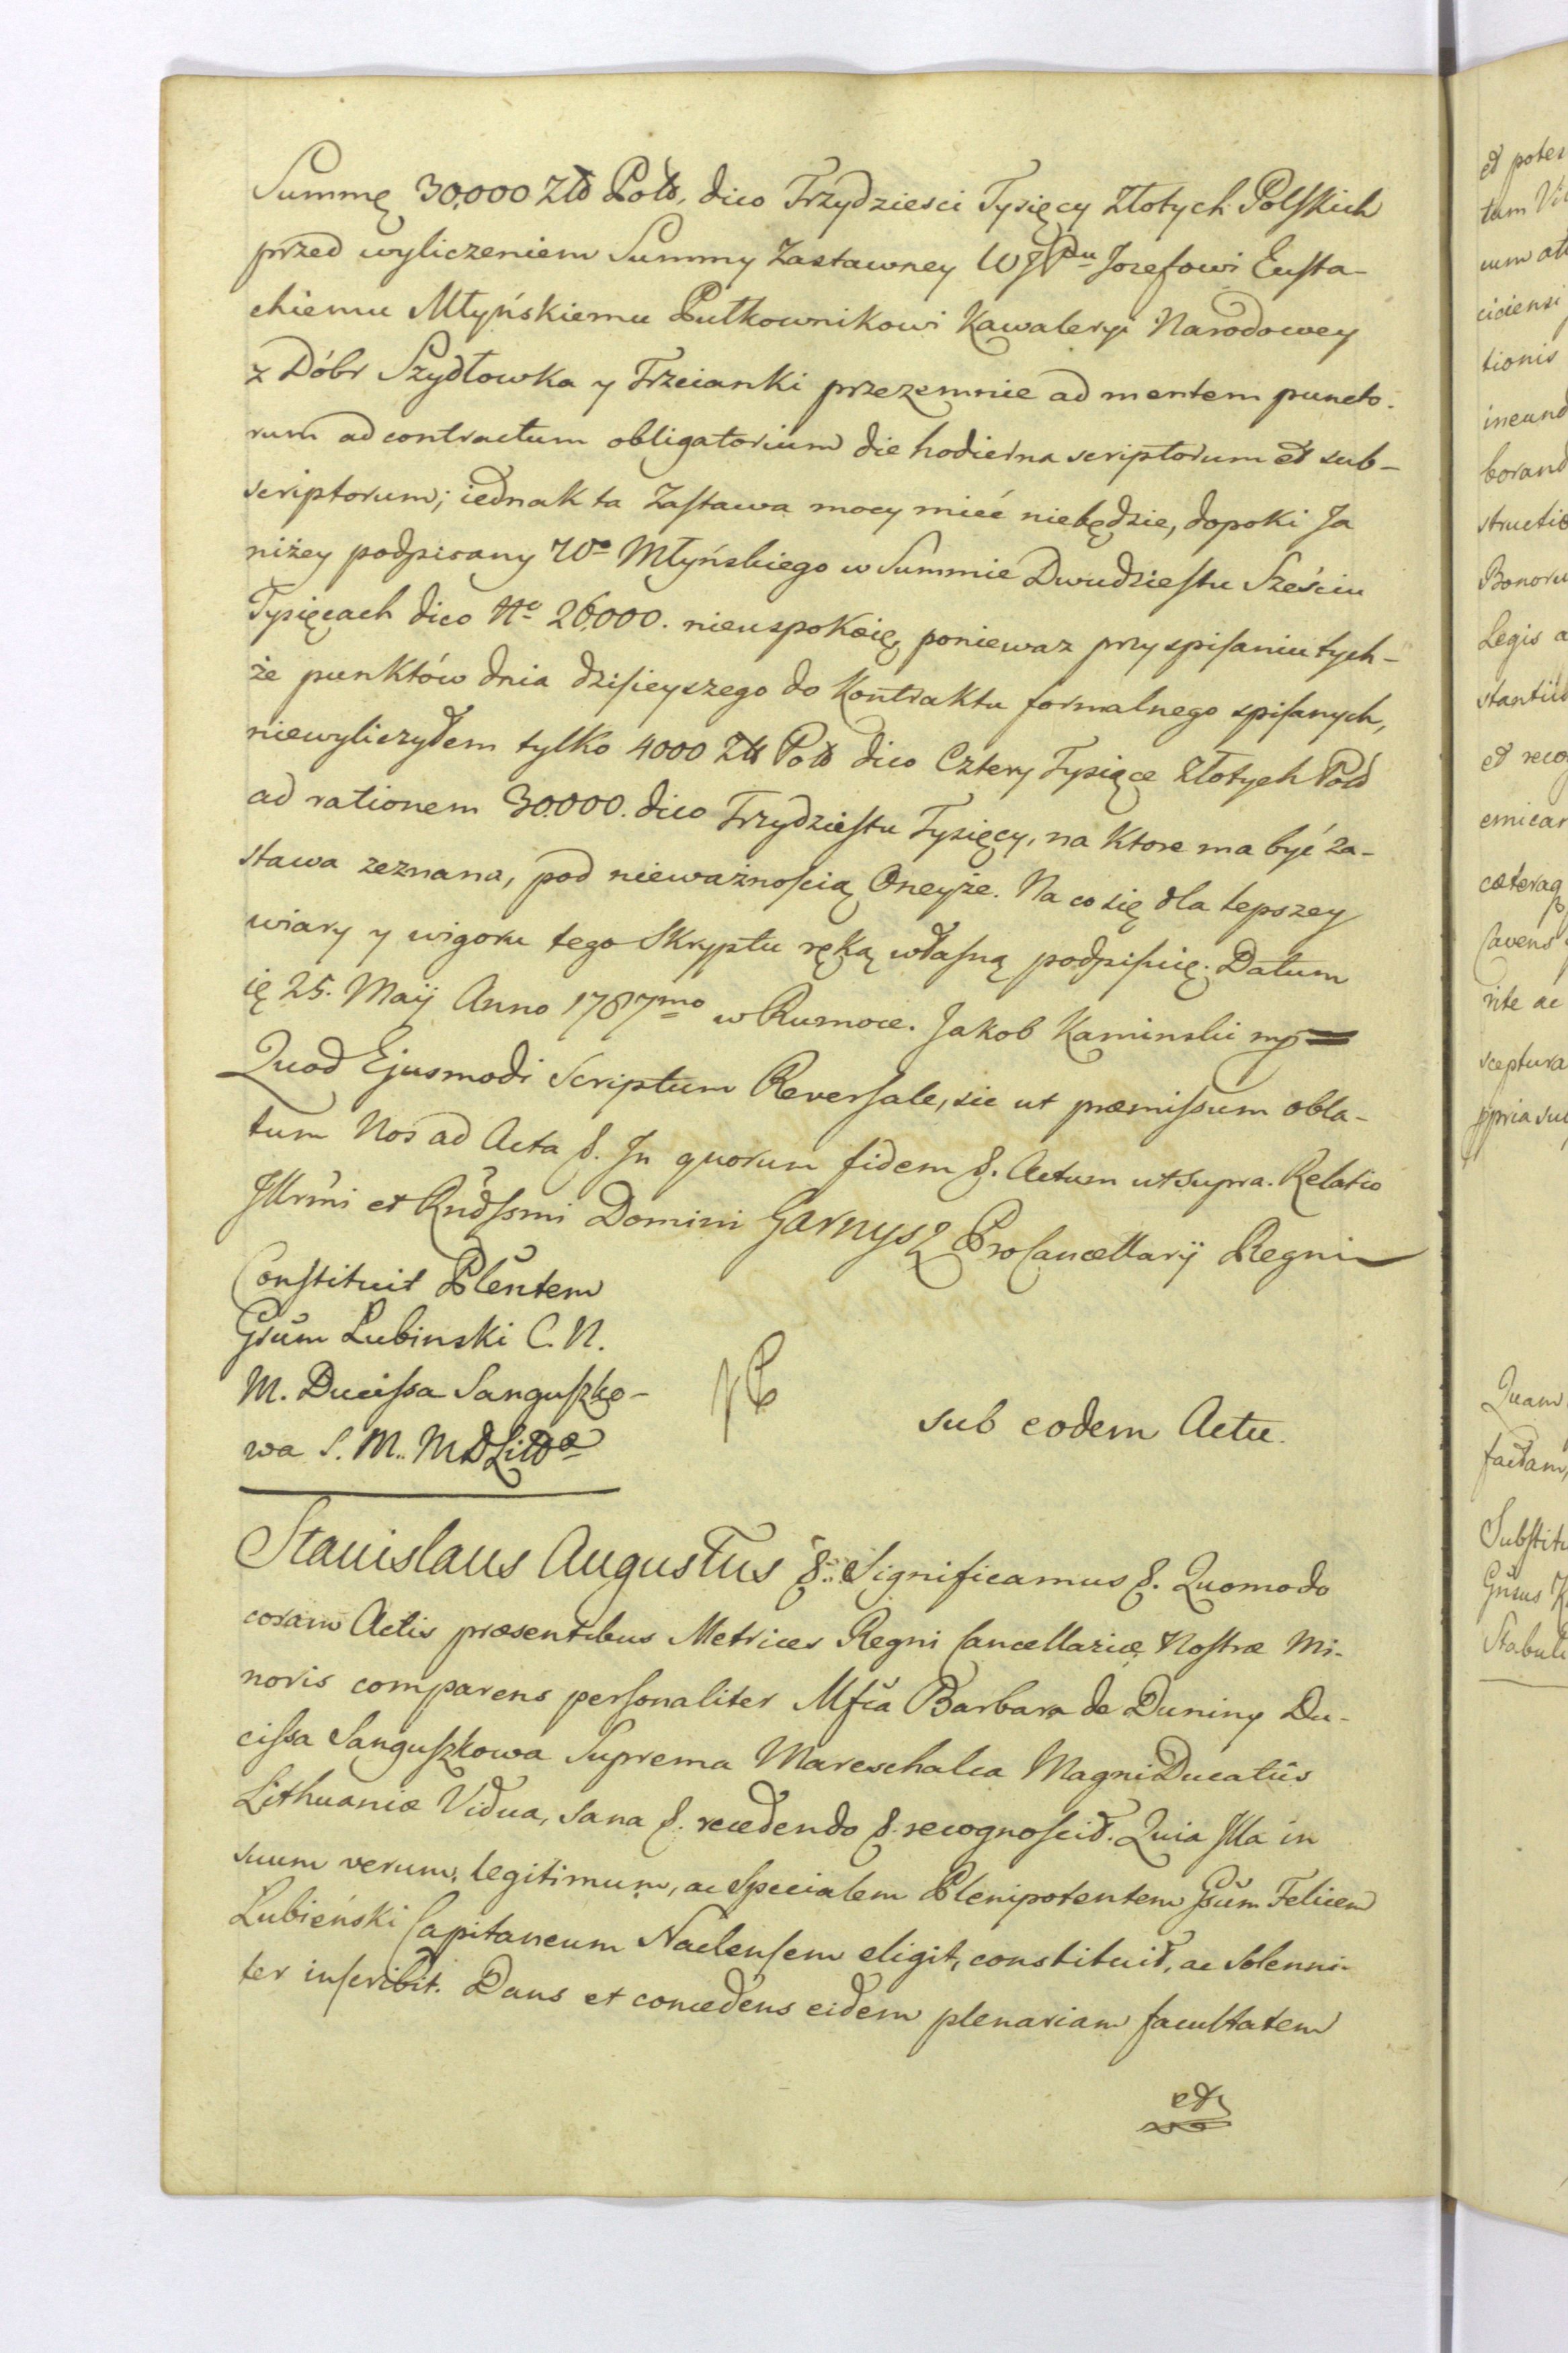 Summę 30,000 Złł Poll, dico Trzydziesci Tysięcy Złotych Polskich
przed wyliczeniem Summy Zastawney WJPanu Jozefowi Eusta-
chiemu Młyńskiemu Pułkownikowi Kawaleryi Narodowey
z Dóbr Szydłowka y Trzcianki przezemnie ad mentem puncto-
rum ad contractum obligatorium die hodierna scriptorum et sub-
scriptorum; iednak ta Zastawa mocy mieć niebędzie, dopoki Ja
niżey podpisany Wo Młyńskiego w Summie Dwudziestu Sześciu
Tysięcach dico No 26,000. nieuspokoię, poniewaz przy spisaniu tych-
że punktów dnia dzisieyszego do Kontraktu formalnego spisanych,
niewyliczyłem tylko 4000 Złł Poll dico Cztery Tysiące Złotych Poll
ad rationem 30.000. dico Trzydziestu Tysięcy, na Ktore ma być za-
stawa zeznana, pod nieważnością Oneyże. Na co się dla lepszey
wiary y wigoru tego Skryptu ręką własną podpisuię. Datum
ię 25. Maij Anno 1787mo w Rumoce. Jakob Kaminski mp
Quod Ejusmodi Scriptum Reversale, sic ut præmissum obla-
tum Nos ad Acta &. In quorum fidem &. Actum ut supra. Relatio
Illrmi et Rndssmi Domini Garnysz ProCancellarij Regni
Constituit Plentem
Gsum Lubinski C. N.
M. Ducissa Sanguszko-
wa S. M. MDLitt
sub eodem Actu.
Stanislaus Augustus &. Significamus &. Quomodo
coram Actis præsentibus Metrices Regni Cancellariæ Nostræ Mi-
noris comparens personaliter Mfca Barbara de Duniny Du-
cissa Sanguszkowa Suprema Mareschalca Magni Ducatûs
Lithuaniæ Vidua, sana &. recedendo &. recognoscit. Quia Illa in
suum verum, legitimum, ac Specialem Plenipotentem Gsum Felicem
Lubieński Capitaneum Naclensem eligit, constituit, ac Solenni-
ter inscribit. Dans et concedens eidem plenariam facultatem
et
et poter
tam
cum
ciciensi
tionis
ineund
borand
structio
Bonoru
Legis a
stantiu
et reco
emicar
cæteraq
Cavens
rite ac
sceptura
ppria su
Quam
factam,
Substitu
Gnsus
Stabuli